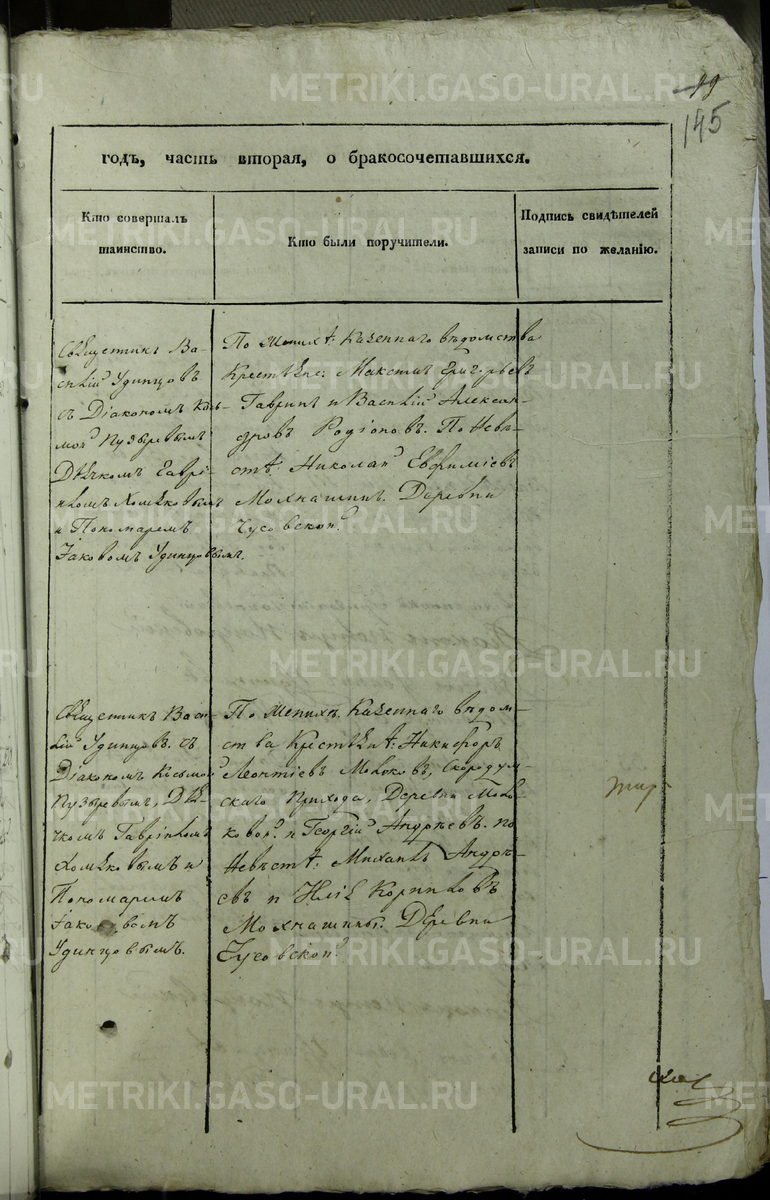 99
145
годъ, часть вторая, о бракосочетавшихся.
Кто совершалъ
таинство.
Кто были поручители.
Подпись свидѣтелей
записи по желанію.
Священникъ Ва-
силій Удинцовъ
съ Діакономъ Козь-
мою Пузыревымъ
Дьячкомъ Гаврі-
иломъ Хомяковымъ
и Пономаремъ
Іаковомъ Удинцовымъ.
По Женихѣ: Казеннаго вѣдомства
Крестьяне: Максимъ Григорьевъ
Гавринъ и Василій Алексан-
дровъ Родіоновъ. По Невѣ-
стѣ: Николай Евфиміевъ
Мохнашинъ. Деревни
Чусовской.
Священникъ Васи-
лій Удинцовъ. съ
Діакономъ Козьмою
Пузыревымъ, Дья-
чкомъ Гавріиломъ
Хомяковымъ и
Пономаремъ
Іаковомъ
Удинцовымъ.
По Женихѣ. Казеннаго вѣдом-
ства Крестьянѣ: Никифоръ
Леонтіевъ Мокковъ, Скородум-
скаго Прихода, Деревни
и Георгій Андреевъ. по
Невѣстѣ: Михаилъ Андрѣ-
евъ и Илія Корниловъ
Мохнашины. Деревни
Чусовской.
METRIKI.GASO-URAL.RU